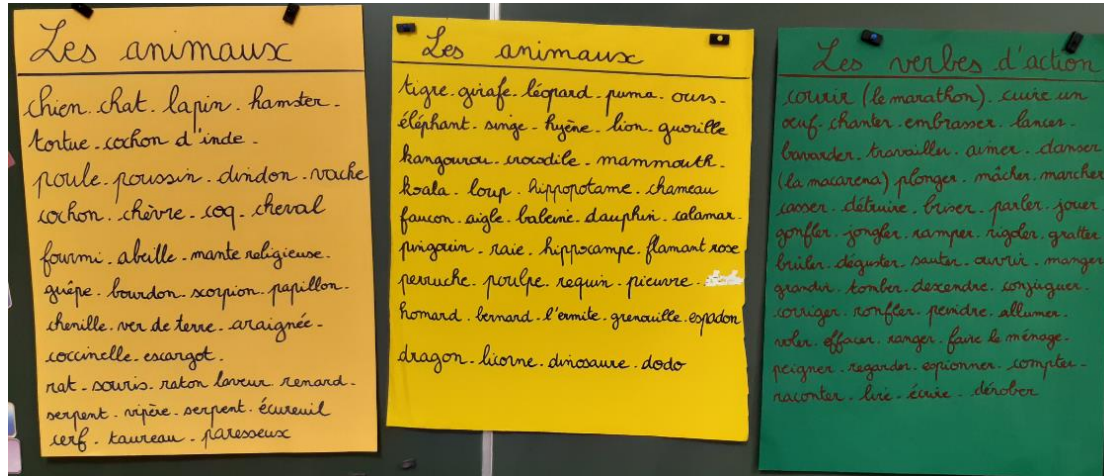 Les animaux
chien - chat - lapin - hamster -
tortue - cochon d'inde -
poule - poussin - dindon - vache
cochon - chèvre - coq - cheval
fourmi - abeille - mante religieuse -
guêpe - bourdon - scorpion - papillon -
chenille - ver de terre - araignée -
coccinelle - escargot -
rat - souris - raton laveur - renard -
serpent - vipère - serpent - écureuil
cerf - taureau - paresseux
Les animaux
tigre - girafe - léopard - puma - ours -
éléphant - singe - hyène - lion - guorille
kangourou - crocodile - mammouth -
koala - loup - hippopotame - chameau
faucon - aigle - baleine - dauphin - calamar -
pingouin - raie - hippocampe - flamant rose
perruche - poulpe - requin - pieuvre -
homard - bernard - l'ermite - grenouille - espadon
dragon - licorne - dinosaure - dodo
Les verbes d'action
courir (le marathon) - cuire un
oeuf - chanter - embrasser - lancer -
bavarder - travailler - aimer - danser
(la macarena) plonger - mâcher - marcher
casser - détruire - briser - parler - jouer
gonfler - jongler - ramper - rigoler - gratter
brûler - déguster - sauter - ouvrir - manger
grandir - tomber - descendre - conjuguer -
corriger - ronfler - peindre - allumer -
voler - effacer - ranger - faire le ménage -
peigner - regarder - espionner - compter -
raconter - lire - écrire - dérober